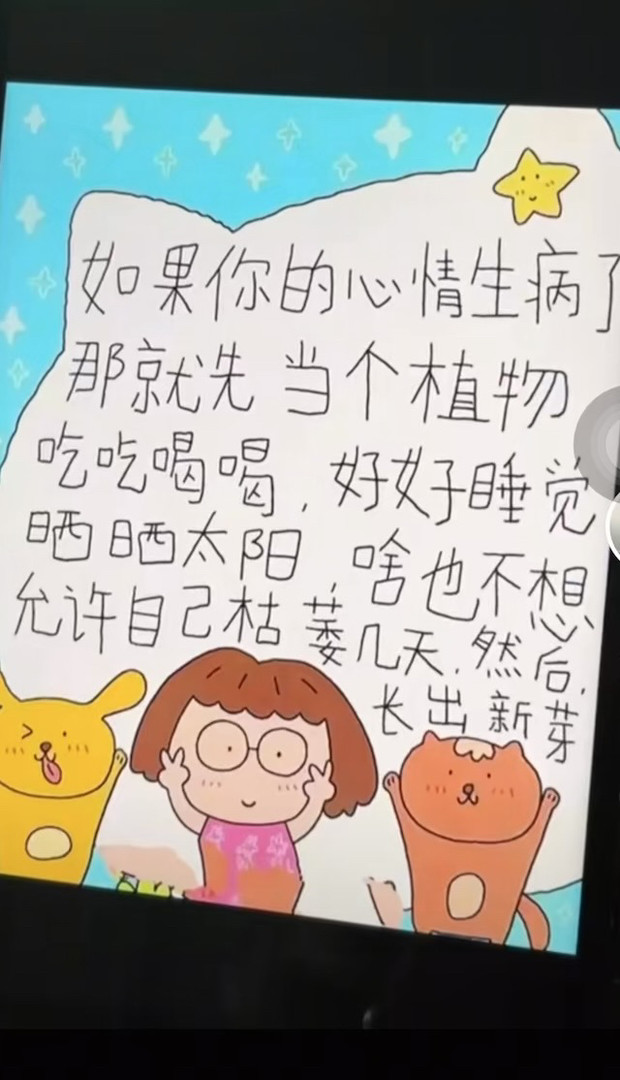 如果你的心情生病了
那就先当个植物
吃吃喝喝,好好睡觉
晒晒太阳,啥也不想
允许自己枯萎几天.然后,
长出新芽